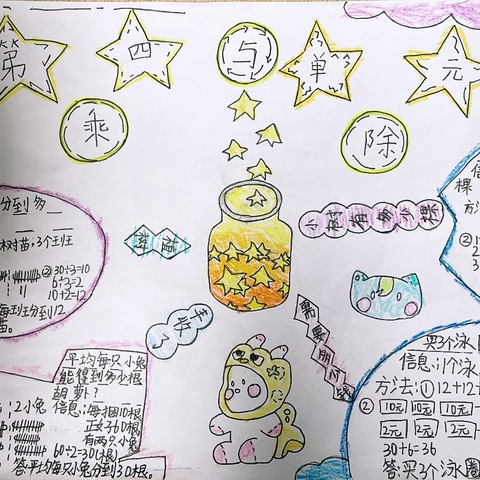 第 四 与 单 元
乘 除
小树有多少棵
植 树
需要多少钱
分到多
树苗:3个班
②30÷3=10
6÷3=2
10+2=12
每班分到12
苗。
平均每只小兔
能得到多少根
胡萝卜?
信息:每捆10根
正好60根
有两只小兔
:2小兔
60÷2=30(根)
答:平均每只小兔分到30根。
信
棵
方法
②1
2
3
买3个泳
信息:1个泳
方法:①12+12+
②
10元 10元 10元
2元 2元 2元
30+6=36
答:买3个泳圈